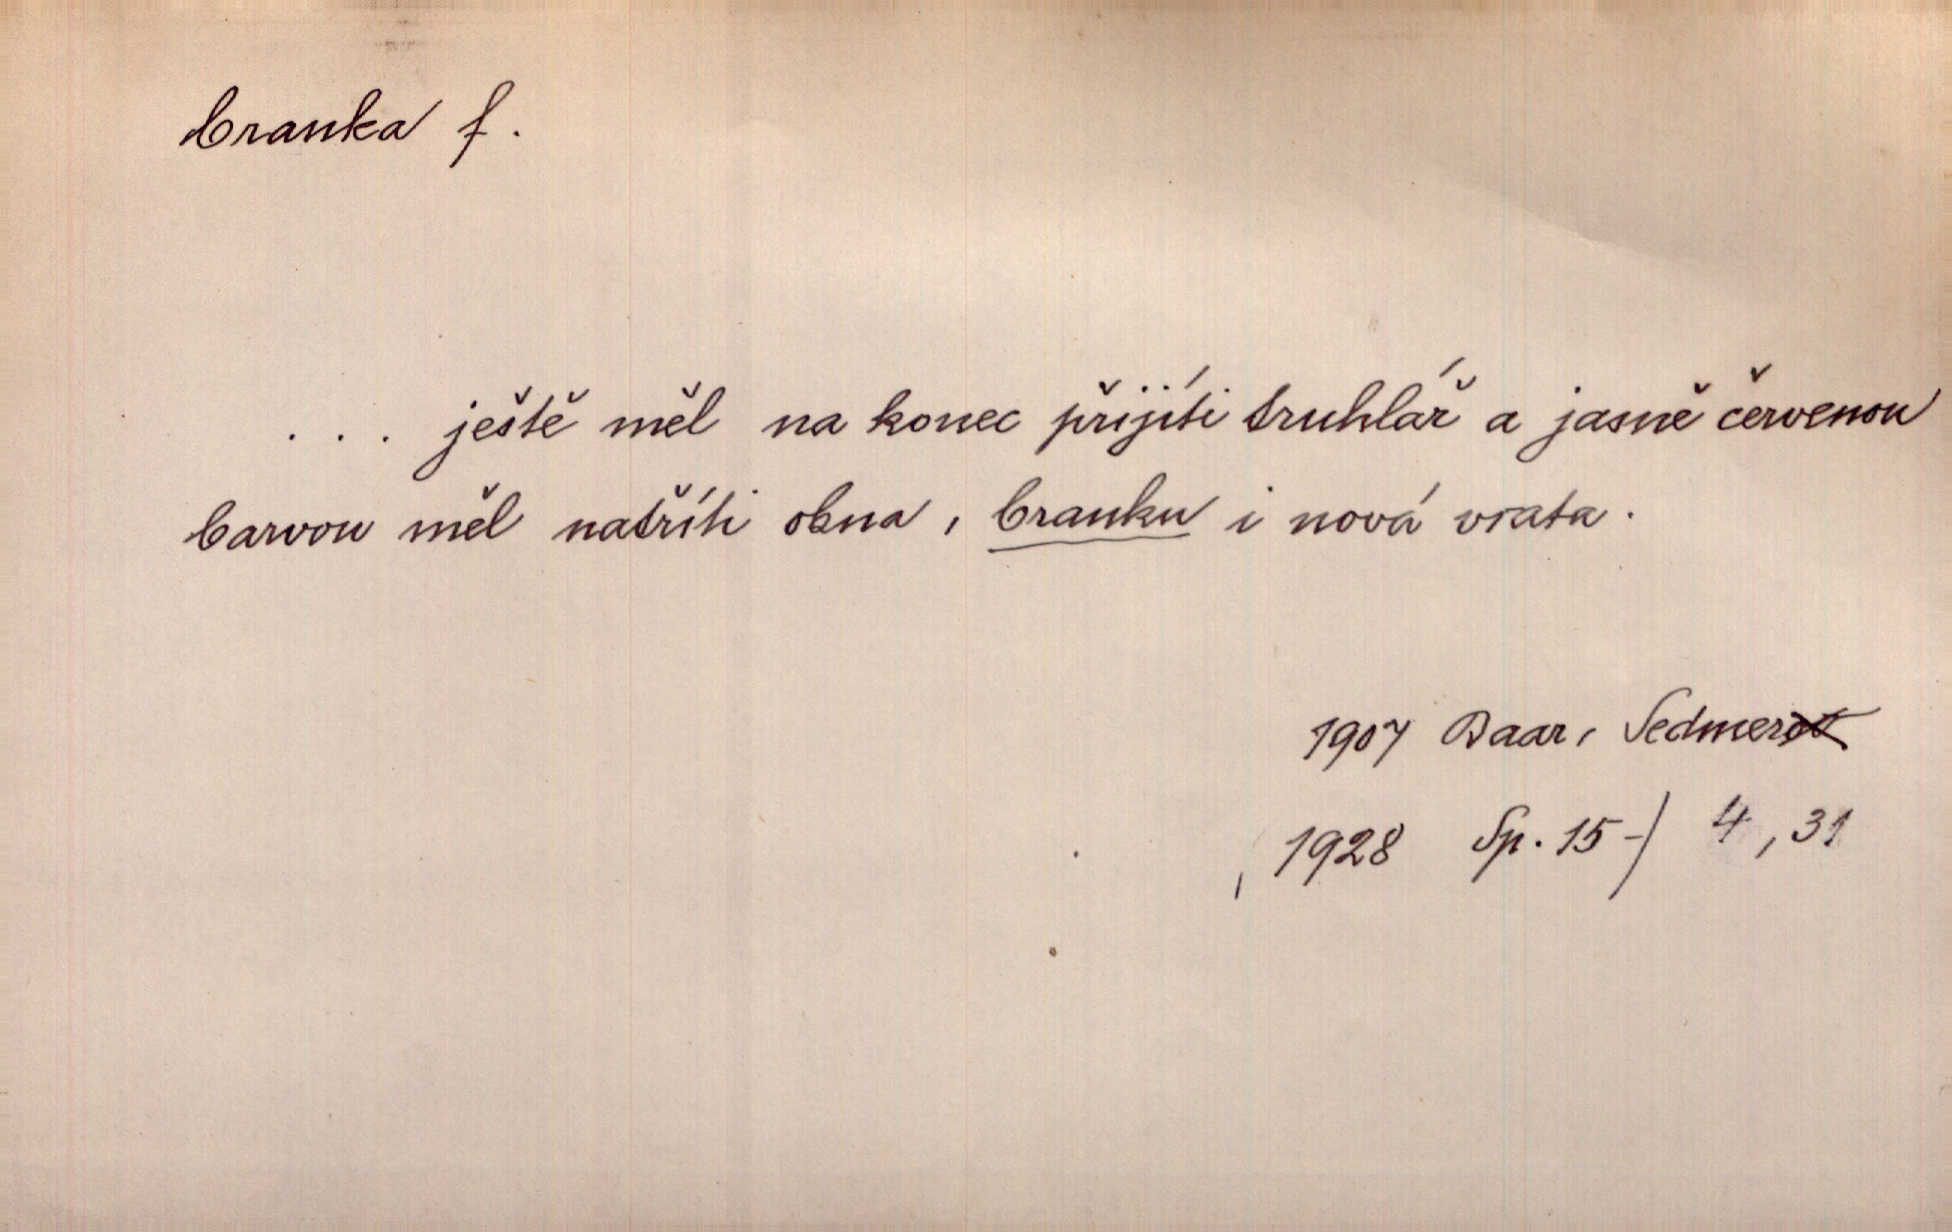 branka f.
... ještě měl na konec přijíti truhlář a jasně červenou
barvou měl natříti okna, branku i nová vrata.
1907 Baar, Sedmer
1928 Sp. 15-) 4, 31